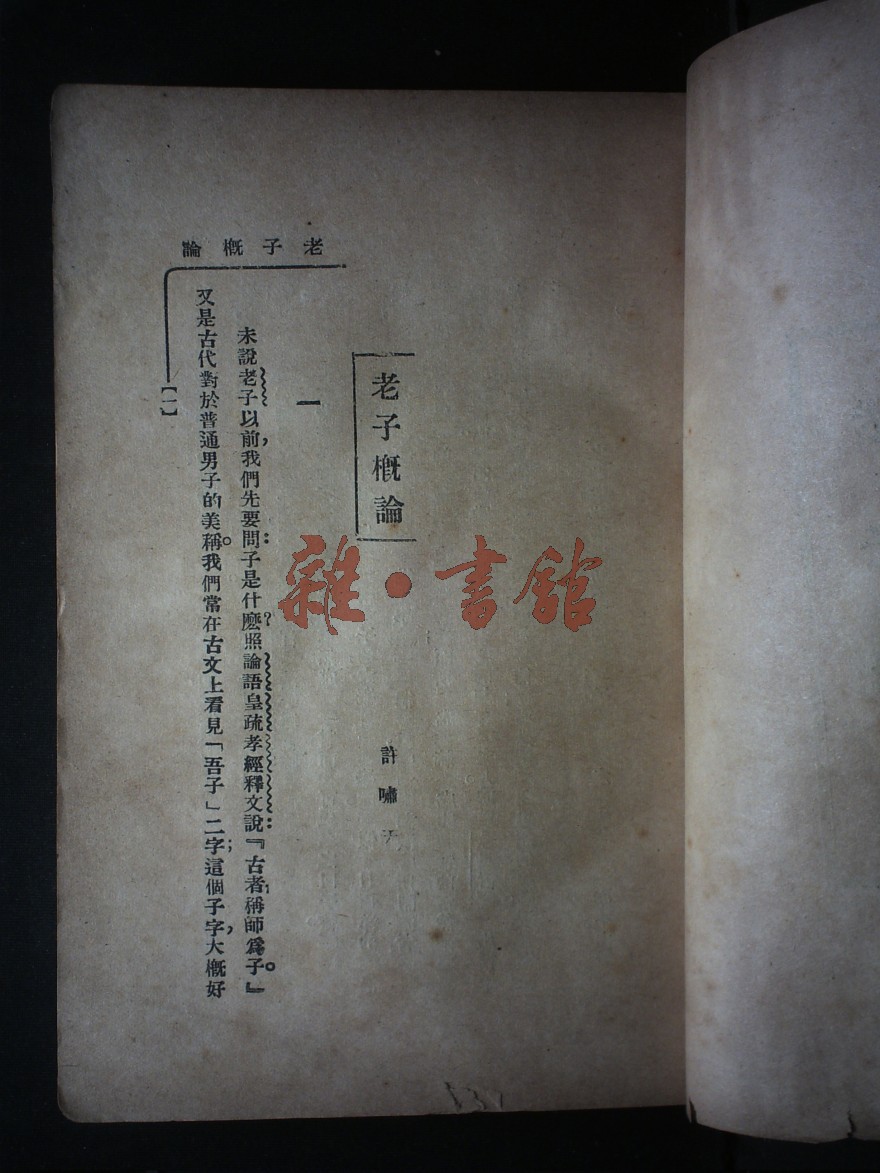 老子概論
老子概論
許嘯天
一
未說老子以前，我們先要問：子是什麼？照論語皇疏孝經釋文說：『古者稱師爲子。』
又是古代對於普通男子的美稱。我們常在古文上看見「吾子」二字；這個子字，大概好
【一】
雜•書館